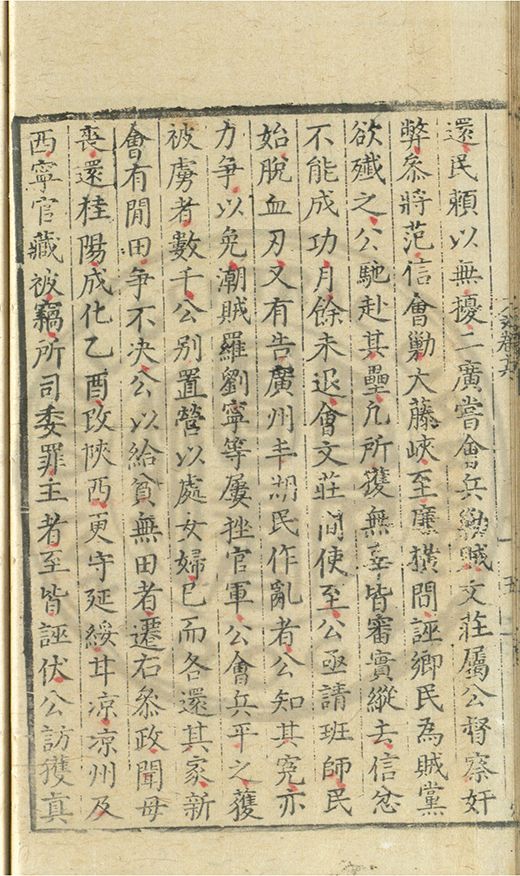 還民賴以無擾二廣嘗會兵勦賊文莊屬公督察奸
弊叅將范信會勦大藤峽至廉橫間誣鄉民為賊黨
欲殲之公馳赴其壘凡所獲無辜皆審實縱去信忿
不能成功月餘未退會文莊間使至公亟請班師民
始脫血刃又有告廣州丰湖民作亂者公知其冤亦
力爭以免潮賊羅劉寧等屢挫官軍公會兵平之獲
被虜者數千公別置營以處女婦已而各還其家新
會有閒田爭不決公以給貧無田者遷右叅政聞母
喪還桂陽成化乙酉改陝西更守延綏甘凉凉州及
西寧官藏被竊所司委罪主者至皆誣伏公訪獲真